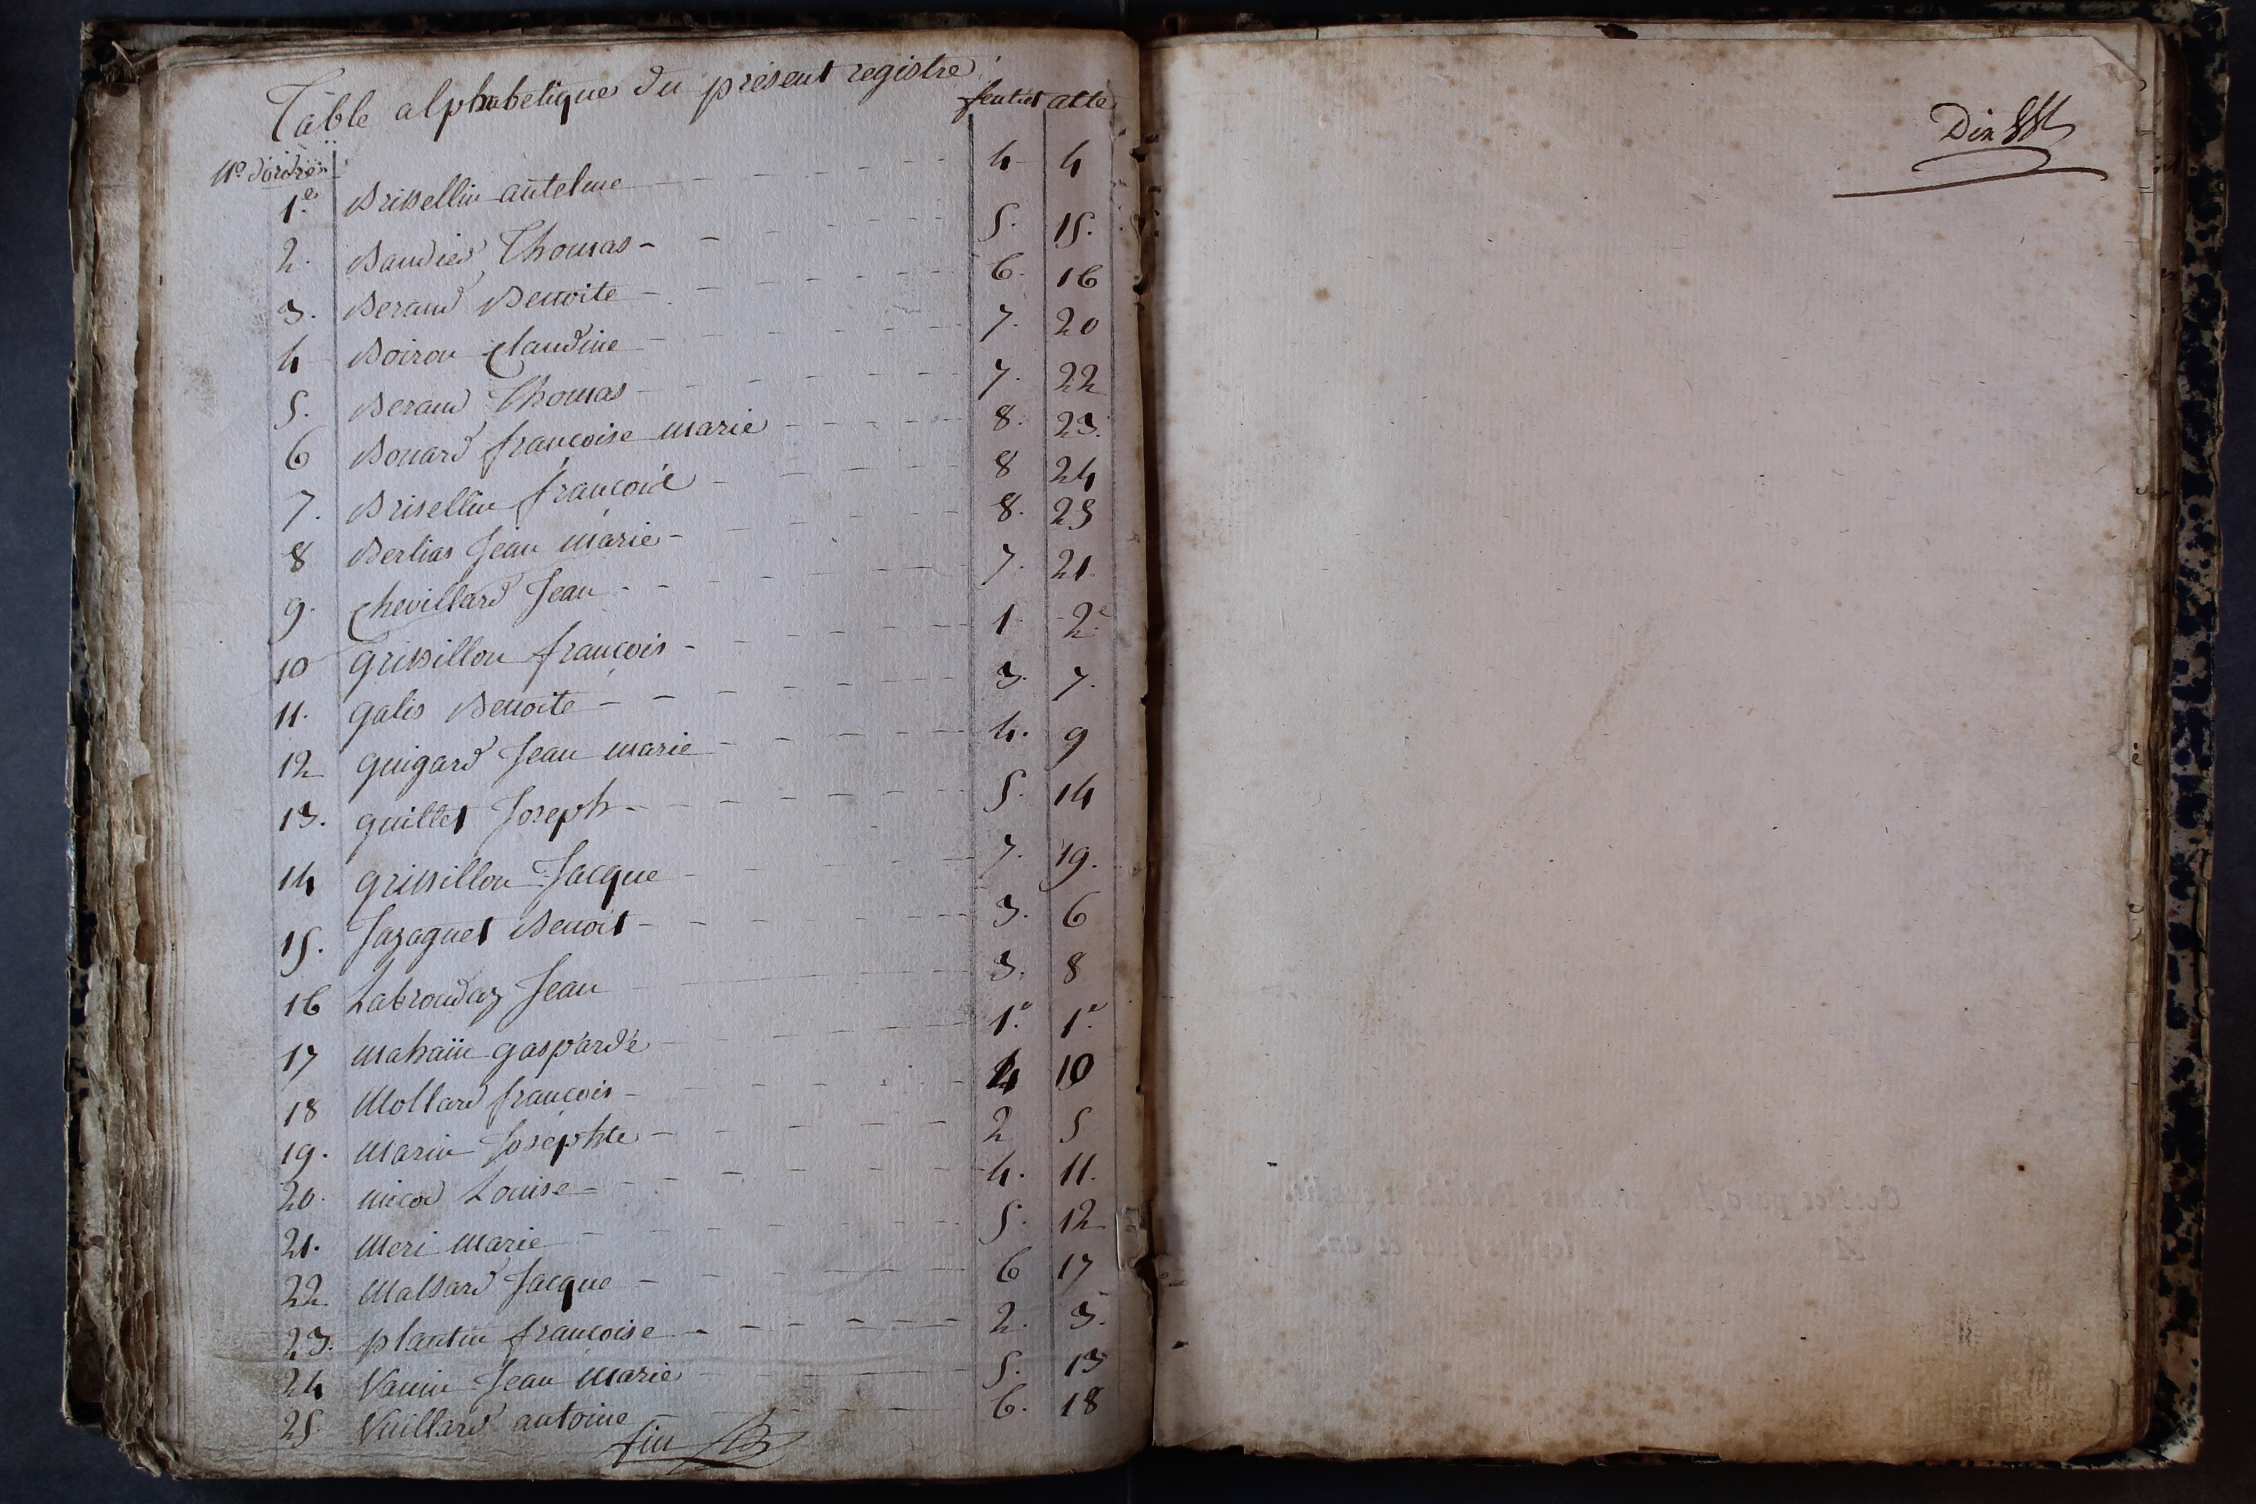 Table alphabetique du présent registre
N.o d'ordre feuillet acte
1.e Brissellin antelme 4 4
2. Baudier Thomas 5. 15.
3. Beraud Benoite 6. 16
4 Boiron Claudine 7. 20
5. Beraud Thomas 7. 22
6 Bonard françoise marie 8. 23.
7. Brisellin françoise 8 24
8 Berlias Jean marie 8. 25
9. Chevillard Jean 7. 21.
10 Grissillon françois 1 2.e
11. Galis Benoite 3. 7.
12 Guigard Jean marie 4. 9
13. Guillet Joseph 5. 14
14 Grissillon Jacque 7. 19.
15. Jazaguet Benoit 3. 6
16 Labrouday Jean 3. 8
17 Mahaïn gasparde 1.e 1.e
18 Mollard françois 4 10
19. Marin Josephte 2 5
20. Micod Louise 4. 11.
21. Meri marie 5. 12
22 Massard Jacque 6 17
23. plantin francoise 2. 3.
24 Vanin Jean Marie 5. 13
25. Vuillard antoine 6. 18
fin
Dix